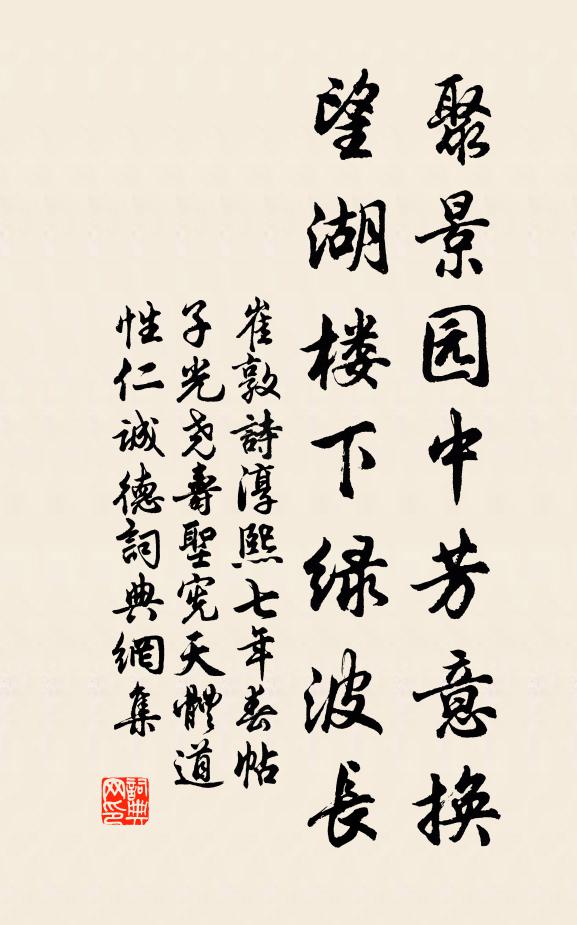 聚景园中芳意换
望湖楼下绿波長
崔敦詩淳熙七年春帖
子光尧壽聖宪天體道
性仁诚德詞典網集
詞典
网印